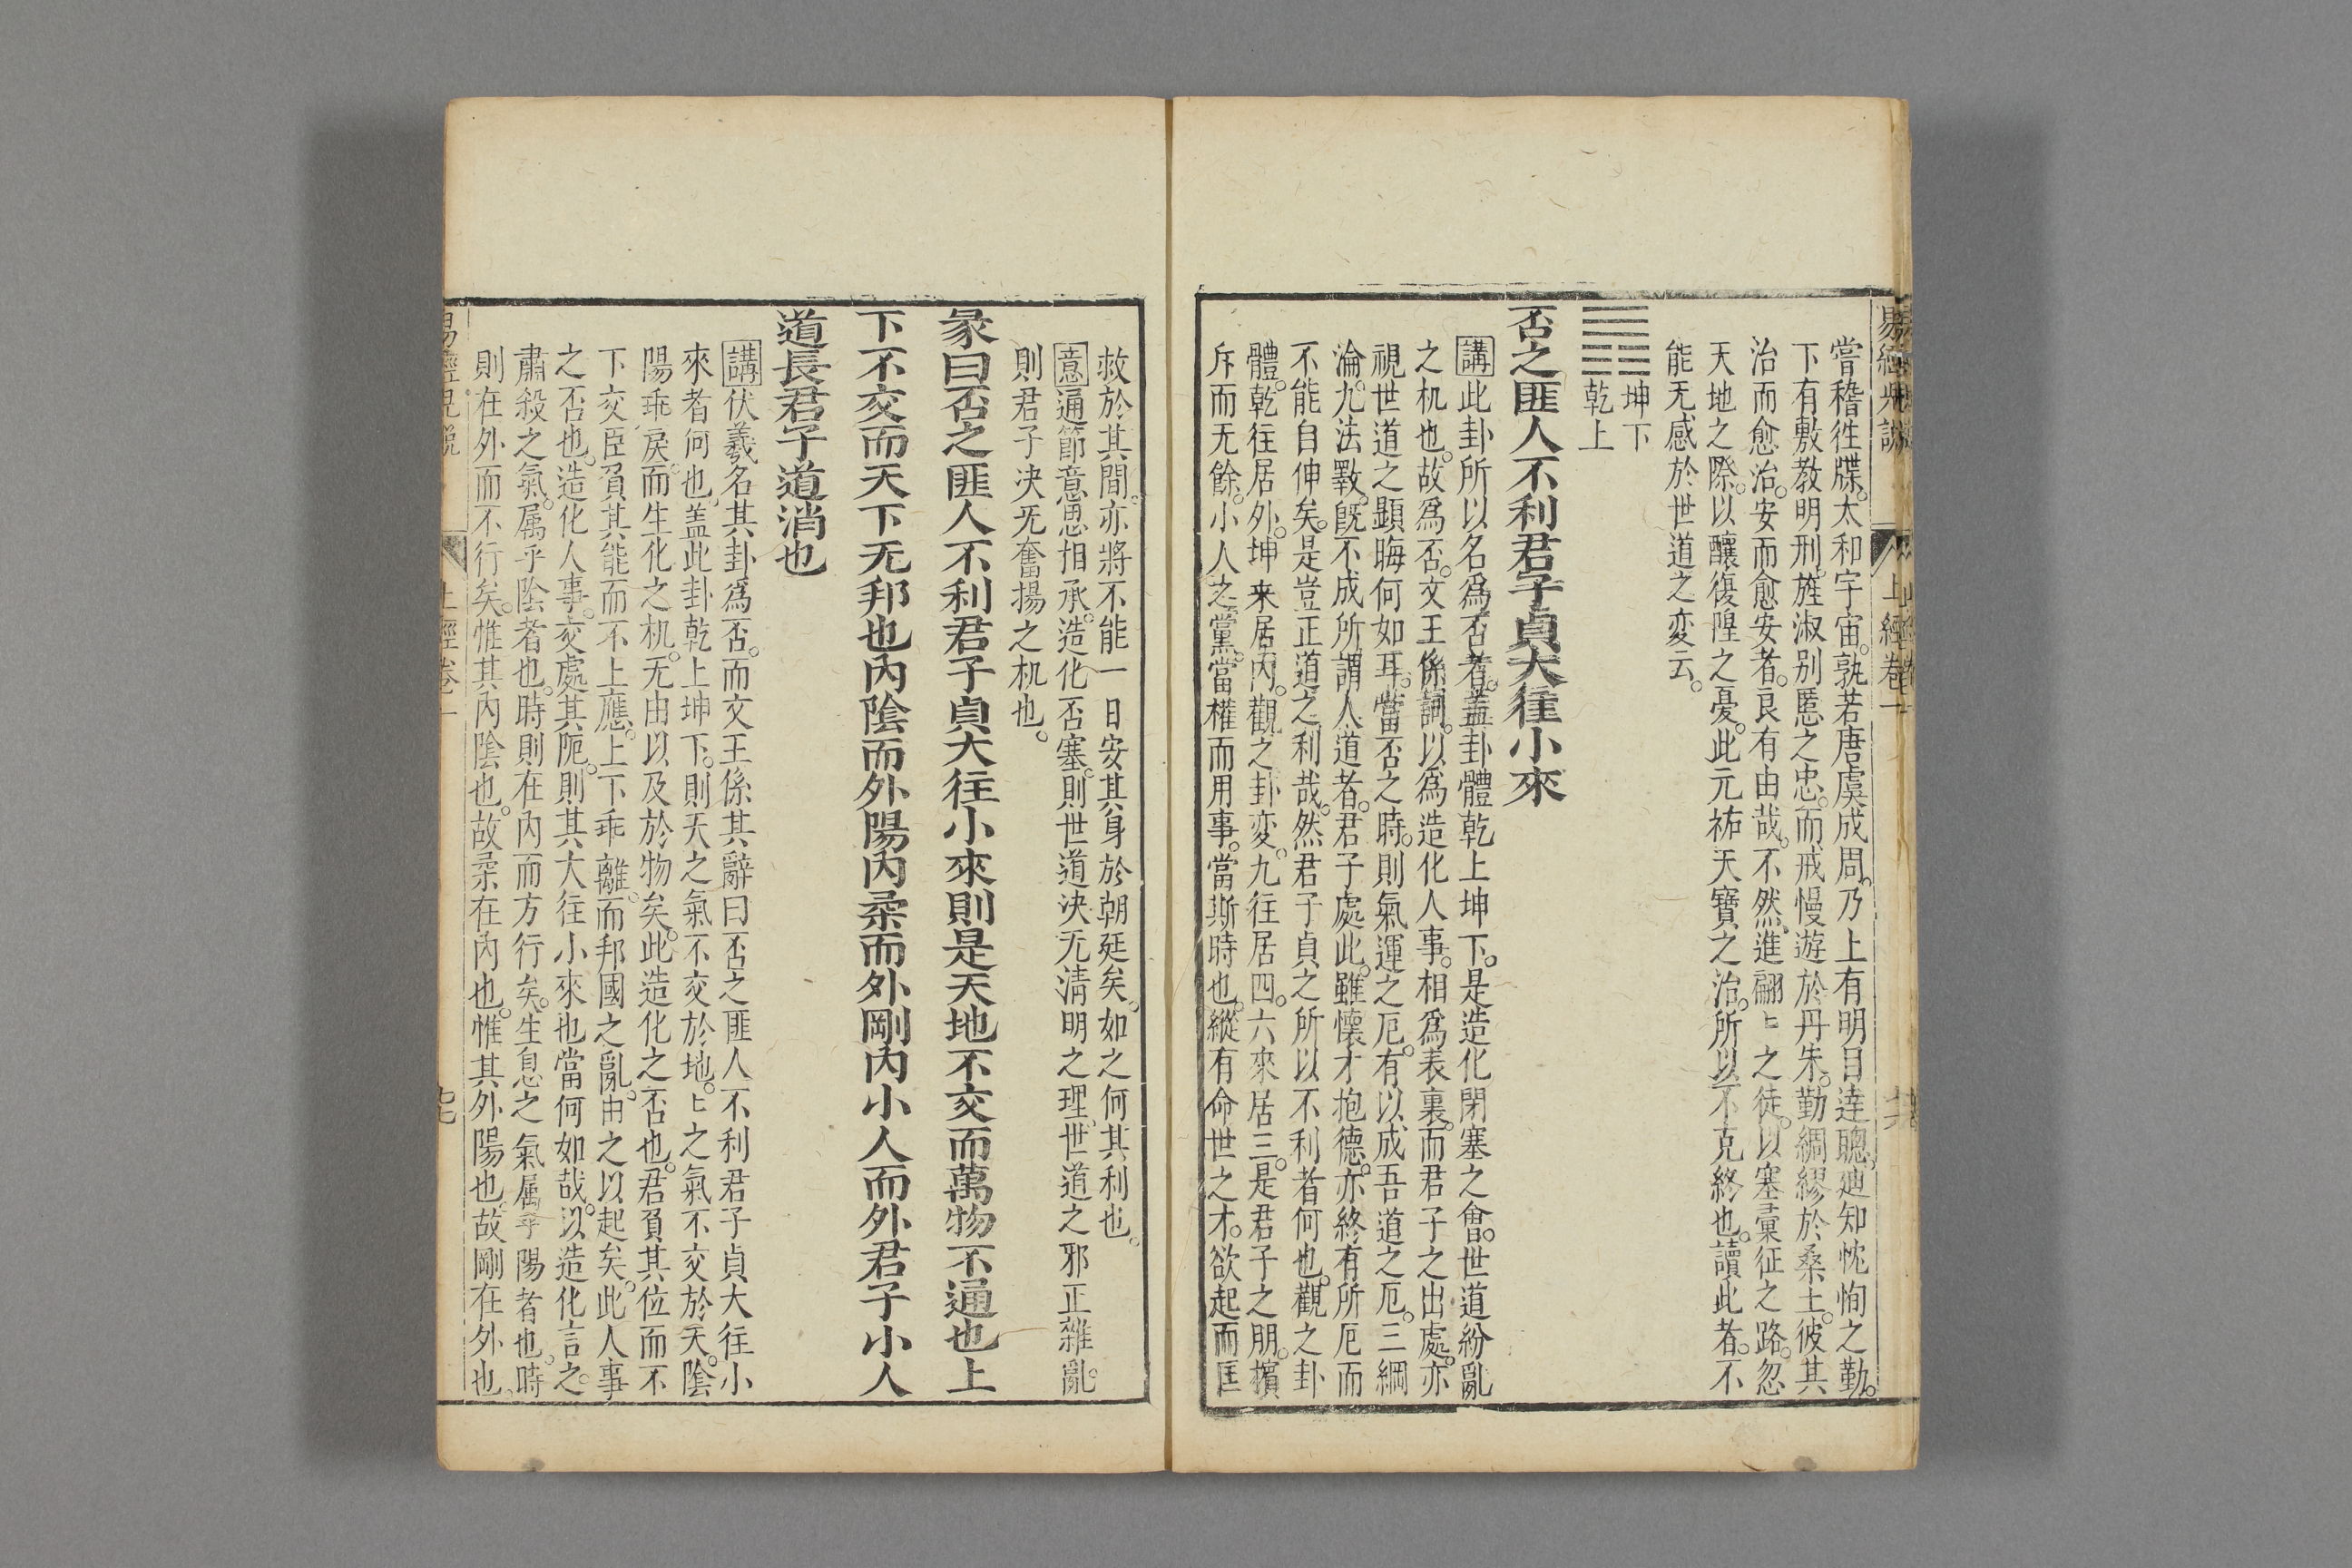 易經兒說
上經卷一
嘗稽徃牒。太和宇宙。孰若唐虞成周。乃上有明目達聰。廸知忱恂之勤。
下有敷教明刑。旌淑別慝之忠。而戒慢遊於丹朱。勤綢繆於桑土。彼其
治而愈治。安而愈安者。良有由哉。不然。進翩〻之徒。以塞彙征之路。忽
天地之際。以釀復隍之憂。此元祐天寶之治。所以不克終也。讀此者。不
能无感於世道之変云。
坤下
乾上
否之匪人不利君子貞大徃小來
講此卦所以名爲否者。蓋卦體乾上坤下。是造化閉塞之會。世道紛亂
之机也。故爲否。文王係詞。以爲造化人事。相爲表裏。而君子之出處。亦
視世道之顕晦何如耳。當否之時。則氣運之厄。有以成吾道之厄。三綱
淪。九法斁。旣不成所謂人道者。君子處此。雖懷才抱德。亦終有所厄而
不能自伸矣。是豈正道之利哉。然君子貞之所以不利者何也。觀之卦
體。乾往居外。坤来居內。觀之卦変。九往居四。六來居三。是君子之朋。擯
斥而无餘。小人之黨。當權而用事。當斯時也。縱有命世之才。欲起而匡
救於其間。亦將不能一日安其身於朝廷矣。如之何其利也。
意通節意思相承。造化否塞。則世道決无淸明之理。世道之邪正雜亂。
則君子决无奮揚之机也。
彖曰否之匪人不利君子貞大往小來則是天地不交而萬物不通也上
下不交而天下无邦也內陰而外陽內柔而外剛內小人而外君子小人
道長君子道消也
講伏羲名其卦爲否。而文王係其辭曰否之匪人不利君子貞大往小
來者何也。蓋此卦乾上坤下。則天之氣不交於地。〻之氣不交於天。陰
陽乖戾。而生化之机。无由以及於物矣。此造化之否也。君負其位而不
下交。臣負其能而不上應。上下乖離。而邦國之亂。由之以起矣。此人事
之否也。造化人事。交處其阨。則其大往小來也當何如哉。以造化言之。
肅殺之氣。属乎陰者也。時則在內而方行矣。生息之氣属乎陽者也。時
則在外而不行矣。惟其內陰也。故柔在內也。惟其外陽也。故剛在外也。
易經兒說
上經卷一
七七